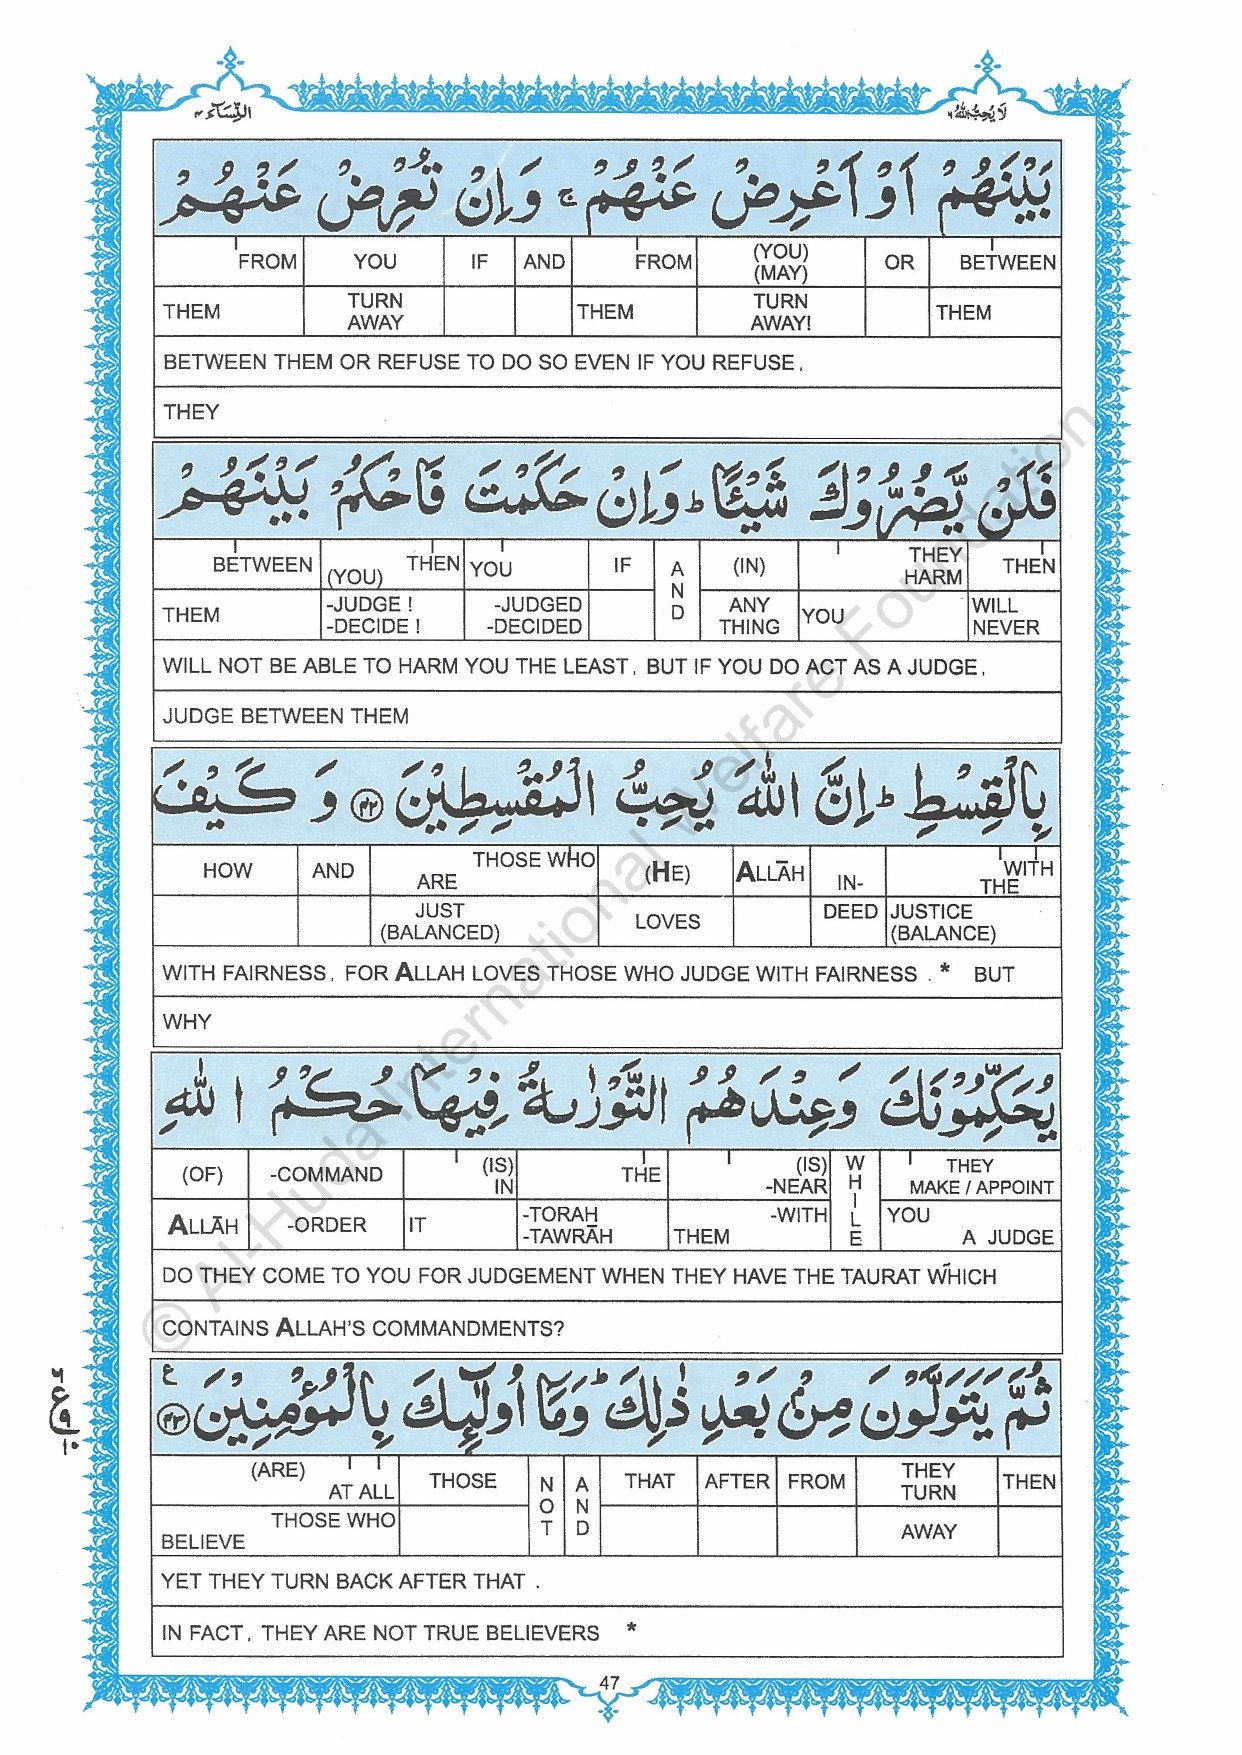 لَا يُحِبُّ اللّٰهُ ٦
النِّسَآء ٤
بَيْنَهُمْ اَوْ اَعْرِضْ عَنْهُمْ ۚ وَاِنْ تُعْرِضْ عَنْهُمْ
FROM YOU IF AND FROM (YOU) (MAY) OR BETWEEN
THEM TURN AWAY THEM TURN AWAY! THEM
BETWEEN THEM OR REFUSE TO DO SO EVEN IF YOU REFUSE,
THEY
فَلَنْ يَّضُرُّوْكَ شَيْئًا ؕ وَاِنْ حَكَمْتَ فَاحْكُمْ بَيْنَهُمْ
BETWEEN (YOU) THEN YOU IF AND (IN) THEY HARM THEN
THEM -JUDGE ! -DECIDE ! -JUDGED -DECIDED ANY THING YOU WILL NEVER
WILL NOT BE ABLE TO HARM YOU THE LEAST, BUT IF YOU DO ACT AS A JUDGE,
JUDGE BETWEEN THEM
بِالْقِسْطِ ؕ اِنَّ اللّٰهَ يُحِبُّ الْمُقْسِطِيْنَ ﴿٤٢﴾ وَ كَيْفَ
HOW AND THOSE WHO ARE (HE) ALLĀH IN- WITH THE
JUST (BALANCED) LOVES DEED JUSTICE (BALANCE)
WITH FAIRNESS, FOR ALLAH LOVES THOSE WHO JUDGE WITH FAIRNESS . * BUT
WHY
يُحَكِّمُوْنَكَ وَعِنْدَهُمُ التَّوْرٰىةُ فِيْهَا حُكْمُ اللّٰهِ
(OF) -COMMAND (IS) IN THE (IS) -NEAR WHILE THEY MAKE / APPOINT
ALLĀH -ORDER IT -TORAH -TAWRĀH THEM -WITH YOU A JUDGE
DO THEY COME TO YOU FOR JUDGEMENT WHEN THEY HAVE THE TAURAT WHICH
CONTAINS ALLAH'S COMMANDMENTS?
ثُمَّ يَتَوَلَّوْنَ مِنْۢ بَعْدِ ذٰلِكَ ؕ وَمَآ اُولٰٓئِكَ بِالْمُؤْمِنِيْنَ ﴿٤٣﴾ ع
(ARE) AT ALL THOSE NOT AND THAT AFTER FROM THEY TURN THEN
THOSE WHO BELIEVE AWAY
YET THEY TURN BACK AFTER THAT .
IN FACT, THEY ARE NOT TRUE BELIEVERS *
47
© Al-Huda International Welfare Foundation